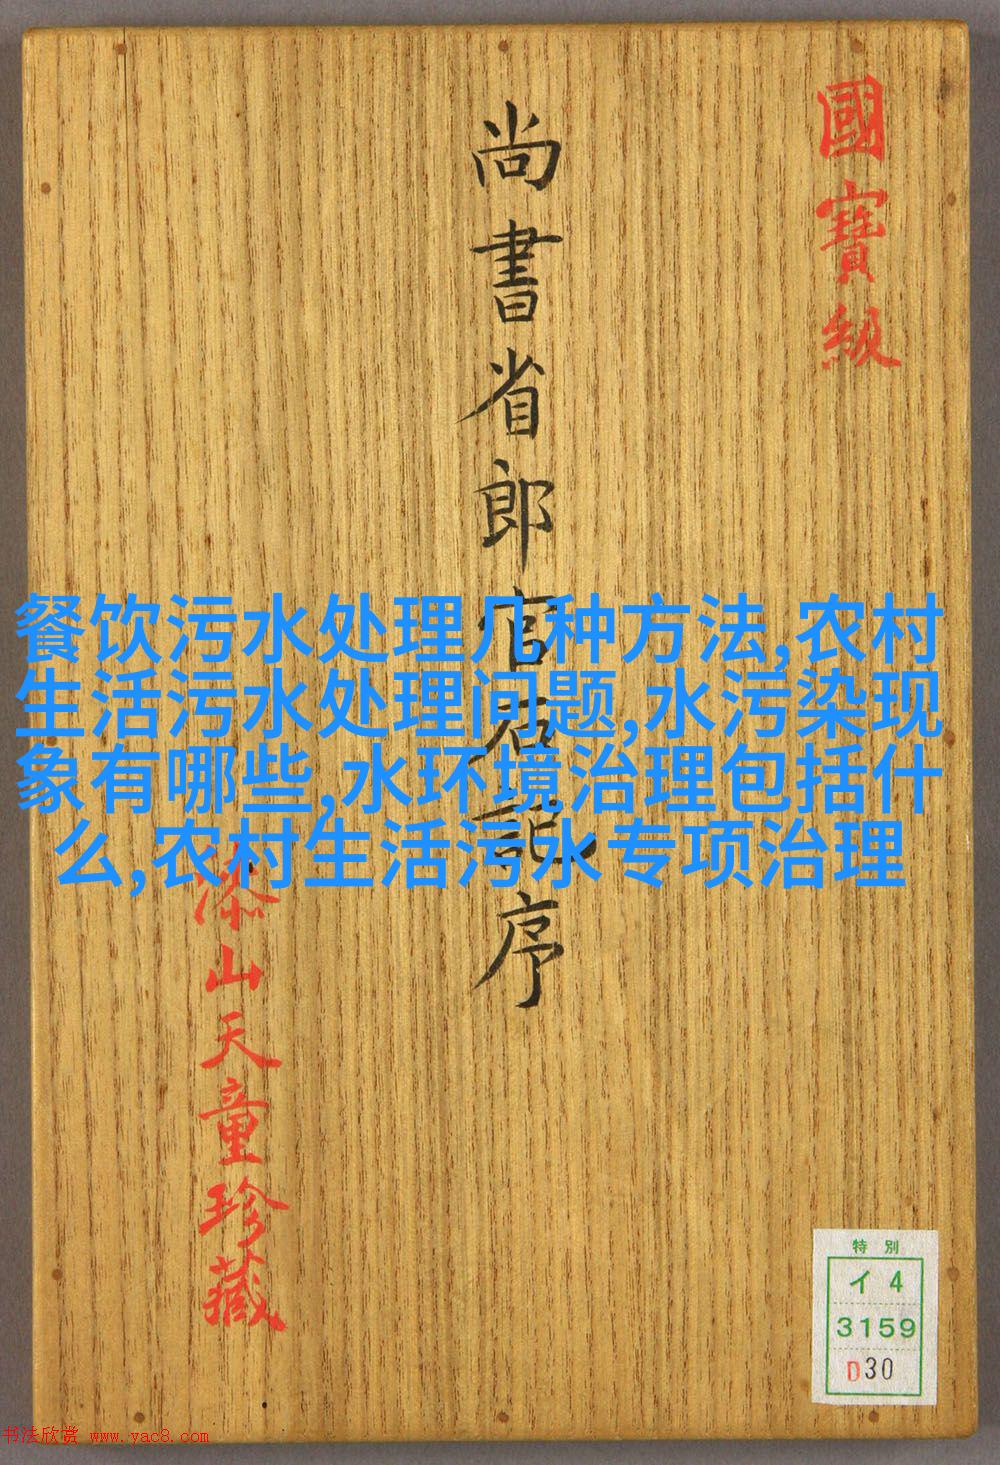 國寶級
尚書省郎官石記序
餐饮污水处理几种方法,农村
生活污水处理问题,水污染现
象有哪些,水环境治理包括什
么,农村生活污水专项治理
添山天童珍藏
特別
イ4
3159
D30
书法欣赏 www.yac8.com